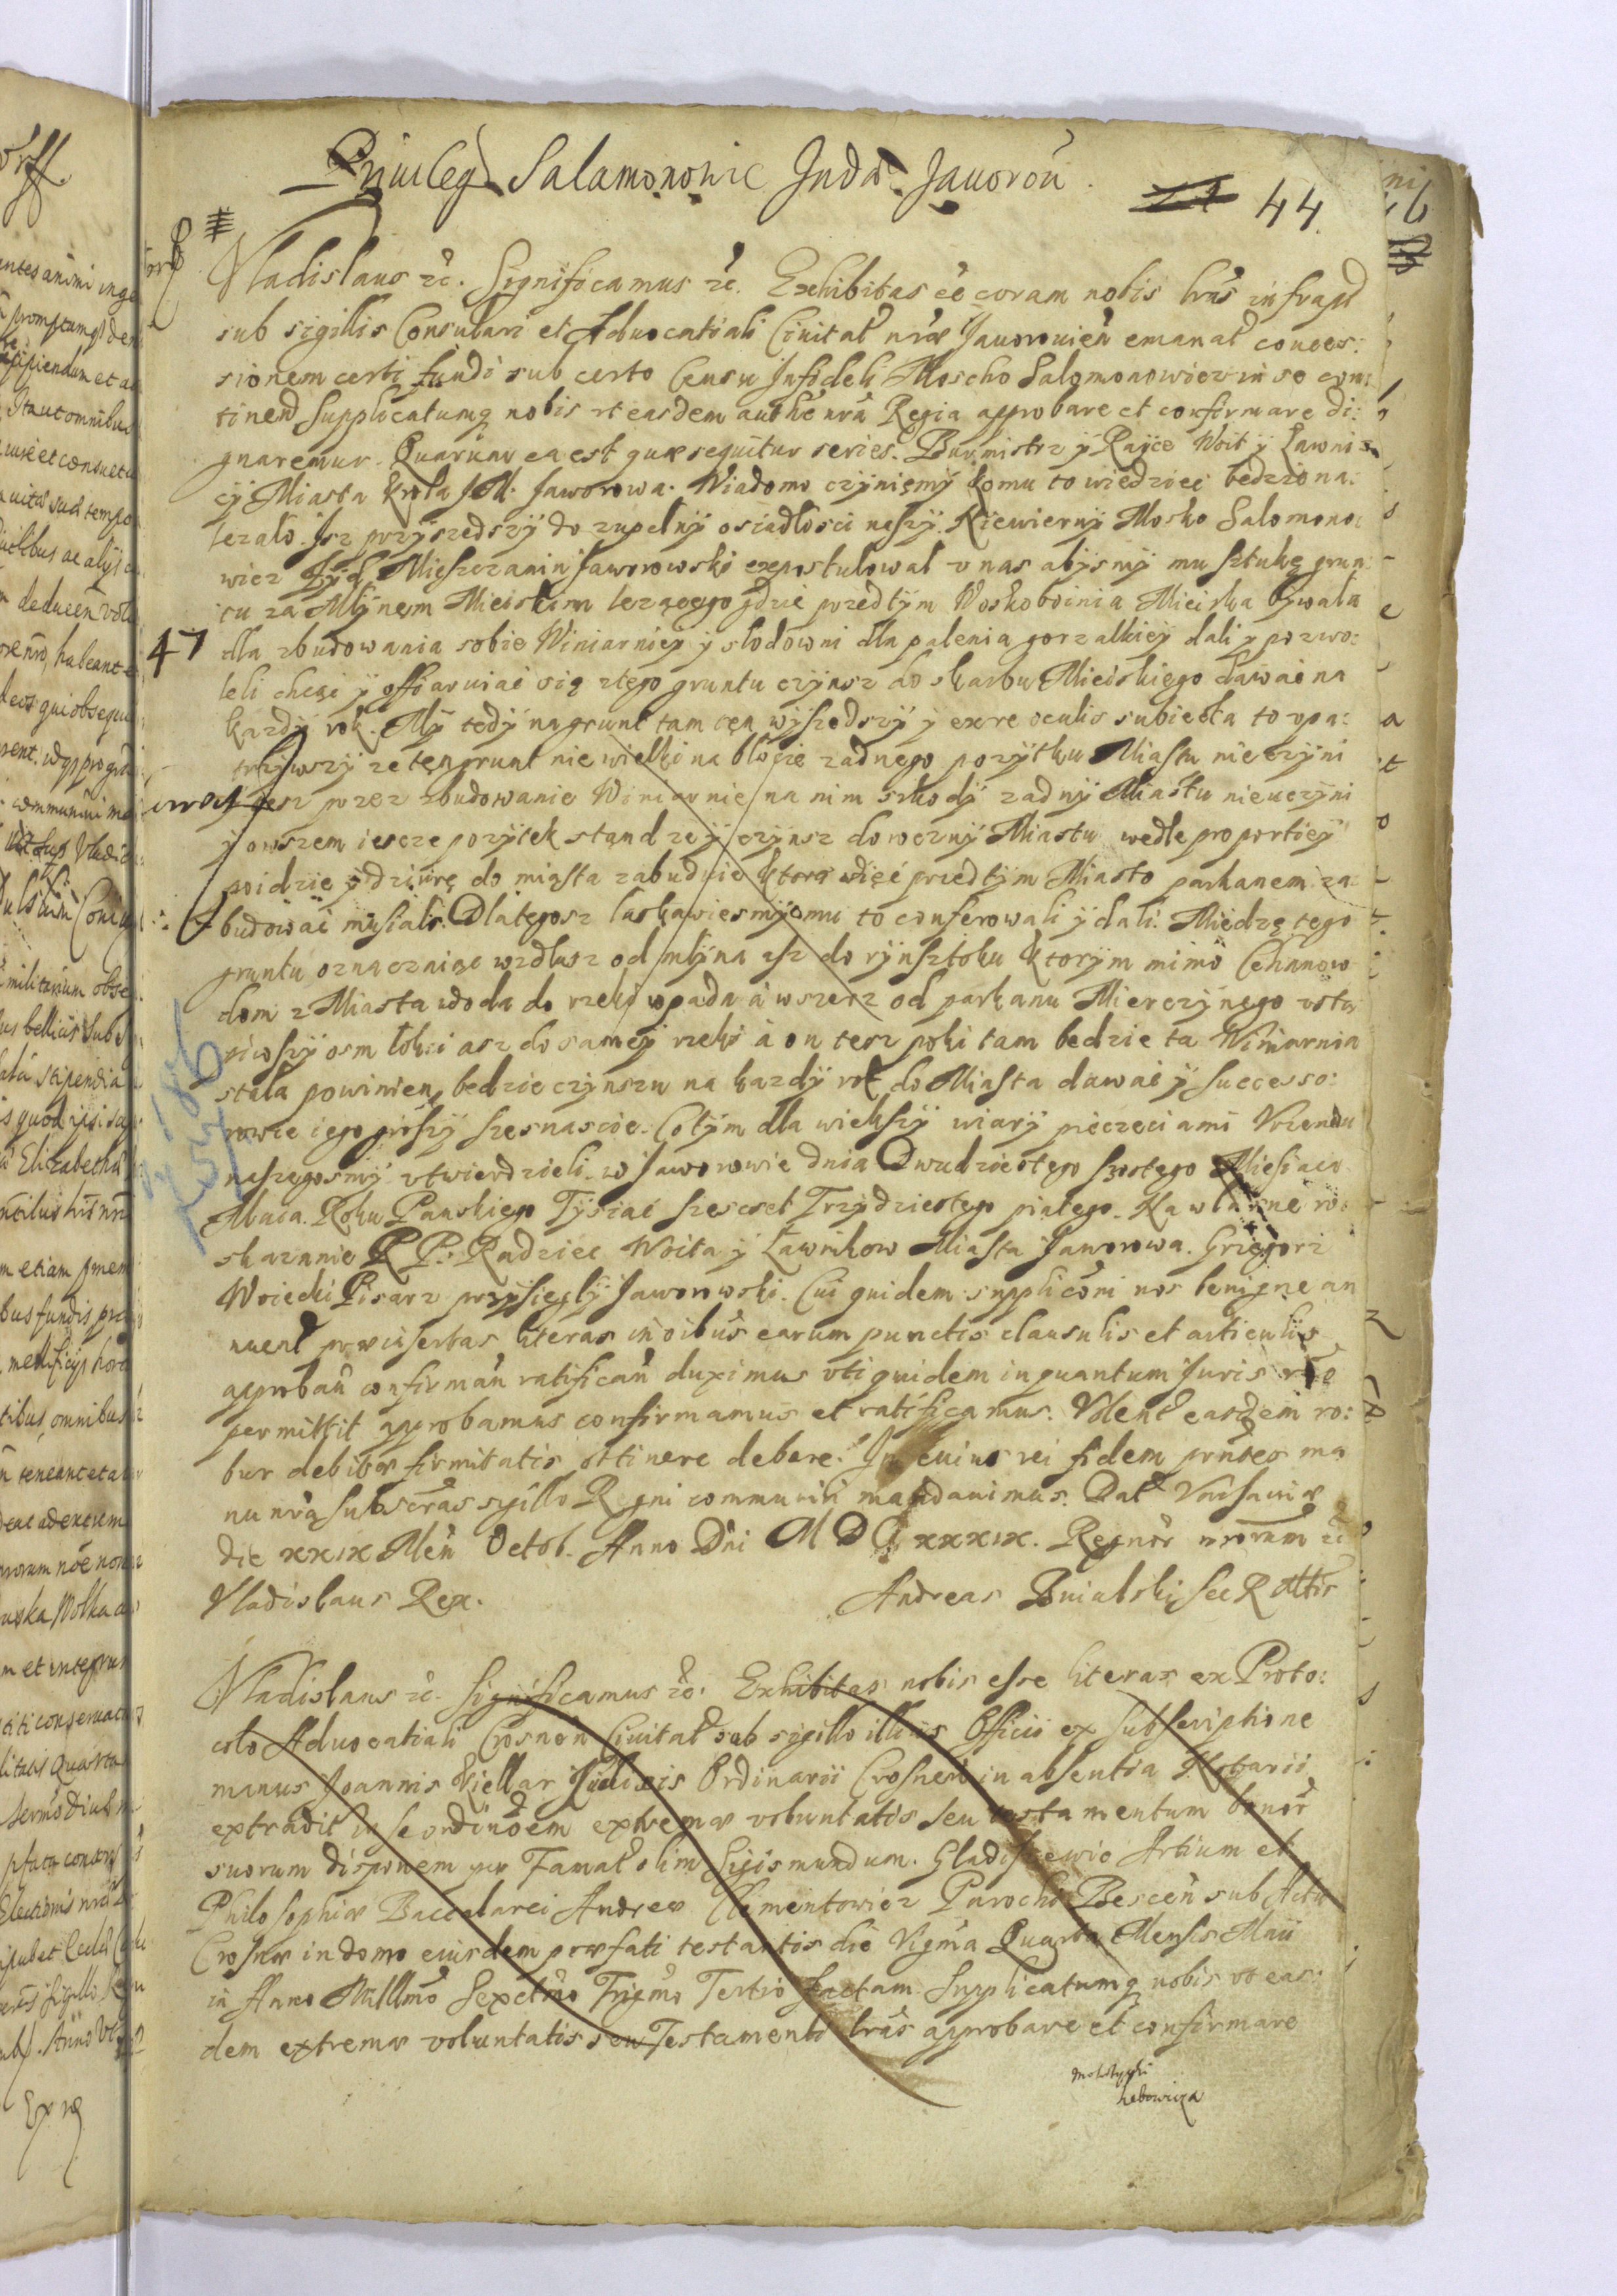 Priuileg Salamonowic Juda Jauorou.
44.
Vladislaus etc. Significamus etc. Exhibitas eē coram nobis lras infrapt
sub sigillis Consulari et Aduocatiali Ciuitat nrae Jauorouien emanat conces:
sionem certi fundi sub certo Censu Infideli Moscho Salomonowicz in se con:
tinen Supplicatumq nobis vt easdem authē nra Regia approbare et confirmare di:
gnaremur. Quarum ea est quae sequitur series. Burmistrz ÿ Rayce Woit ÿ Lawni
cÿ Miasta Krola JM. Jaworowa. Wiadomo czÿnięmÿ komu to wiedziec bedzie na:
lezalo. Isz przÿszedszÿ do zupelnÿ osiadłosci naszÿ. Niewiernÿ Mosko Salomono:
wicz Zÿd Mieszczanin Jaworowski expostulował v nas abÿsmÿ mu sztukę grun
tu za Mlÿnęm Mieiskim lezącego gdzie przedtÿm Woskoboinia Mieiska bÿwała
47 dla zbudowania sobie Winiarniey ÿ słodowni dla palenia gorzałkiey dali ÿ pozwo:
leli chcąc ÿ offiaruiac się ztego gruntu czÿnsz do skarbu Mieiskiego dawac na
kazdÿ rok. Mÿ tedÿ na grunt tam tęn wÿszedszÿ ÿ exre oculis subiecta to vpa:
trzÿwszÿ ze tęn grunt nie wielki na błocie zadnego pozÿtku Miastu nieczÿni
tesz przez zbudowanie Winiarnie na nim szkodÿ zadnÿ Miastu nieuczÿni
ÿ owszem iescze pozÿtek stand zeÿ czÿnsz dorocznÿ Miastu wedle proportieÿ
poidzie ÿ dziurę do miasta zabuduie ktorą więc przedtÿm Miasto parkanem za:
budowac musialo. Dlategosz laskawiesmÿ mu to conferowali ÿ dali. Miedzę tego
gruntu oznaczaiąc wzdłusz od młÿna asz do rÿnsztoku ktorÿm mimo Cehanow
dom z Miasta woda do rzeki wpada à wszerz od parkanu Mierczÿnego vstą
piwszÿ osm łokci asz do sameÿ rzeki à on tesz poki tam bedzie ta Winiarnia
stała powinien bedzie czÿnszu na kazdÿ rok do Miasta dawac ÿ successo:
rowie iego groszÿ szesnascie. Co tÿm dla wiekszÿ wiarÿ pieczęciami Vrzendu
naszegosmÿ vtwierdzieli. w Jaworowie dnia Dwudziestego szostego Miesiaca
Maia. Roku Panskiego Tÿsiąc szescset Trzÿdziestego piątego. Na własne ro:
skazanie P P: Radziec Woita ÿ Lawnikow Miasta Jaworowa. Grzegorz
Woiecki Pisarz przÿsięglÿ Jaworowski. Cui quidem supplicōni nos benigne an
nuent praeinsertas literas in oibus earum punctis clausulis et articulis
approban confirman ratifican duximus vti quidem inquantum Juris roe
permittit approbamus confirmamus et ratificamus. Volent easdem ro:
bur debitae firmitatis ottinere debere. In cuius rei fidem prntes ma
nu nra subscras sigillo Regni communiri mandauimus. Dat Varsauiae
die xxix Men Octob. Anno Dni MDCxxxix. Regnor nrorum etc
Vladislaus Rex. Andreas Bninski Sec R Mttis
Vladislaus etc. Significamus etc. Exhibitas nobis esse literas ex Proto:
colo Aduocatiali Crosnen Ciuitat sub sigillo illius Officii ex subscriptione
manus Joannis Kiellar Judicis Ordinarii Crosnen in absentia Notarii
extradit in se ordinōem extremae voluntatis seu testamentum bonor
suorum disponem per Famat olim Sigismundum. Gladiszewic Artium et
Philosophiae Baccalarei Andreae Clementowicz Parochi Bescen sub Actu
Crosnae in domo eiusdem praefati testantis die Vigma Quarta Mensis Maii
in Anno Millmo Sexctmo Trigmo Tertio factam. Supplicatumq nobis vt eas:
dem extremae voluntatis seu Testamenti lras approbare et confirmare